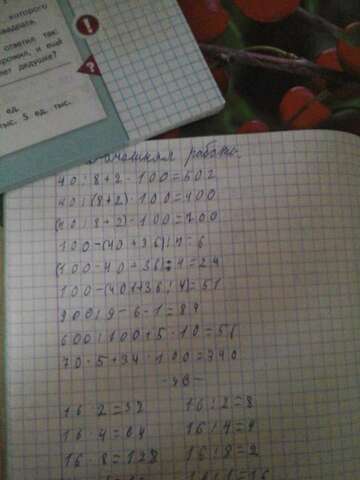 которого
квадрата.
ответил так:
и ещё
лет дедушке?
ед.
тыс. 5 ед. тыс.
Домашняя работа.
40:8+2·100=502
40:(8+2)·100=400
(40:8+2)·100=700
100-(40+36):4=6
(100-40+36):4=24
100-(40+36:4)=51
900:9-6·1=89
600:100+5·10=56
70·5+34·100=340
16·2=32 16:2=8
16·4=64 16:4=4
16·8=128 16:8=2